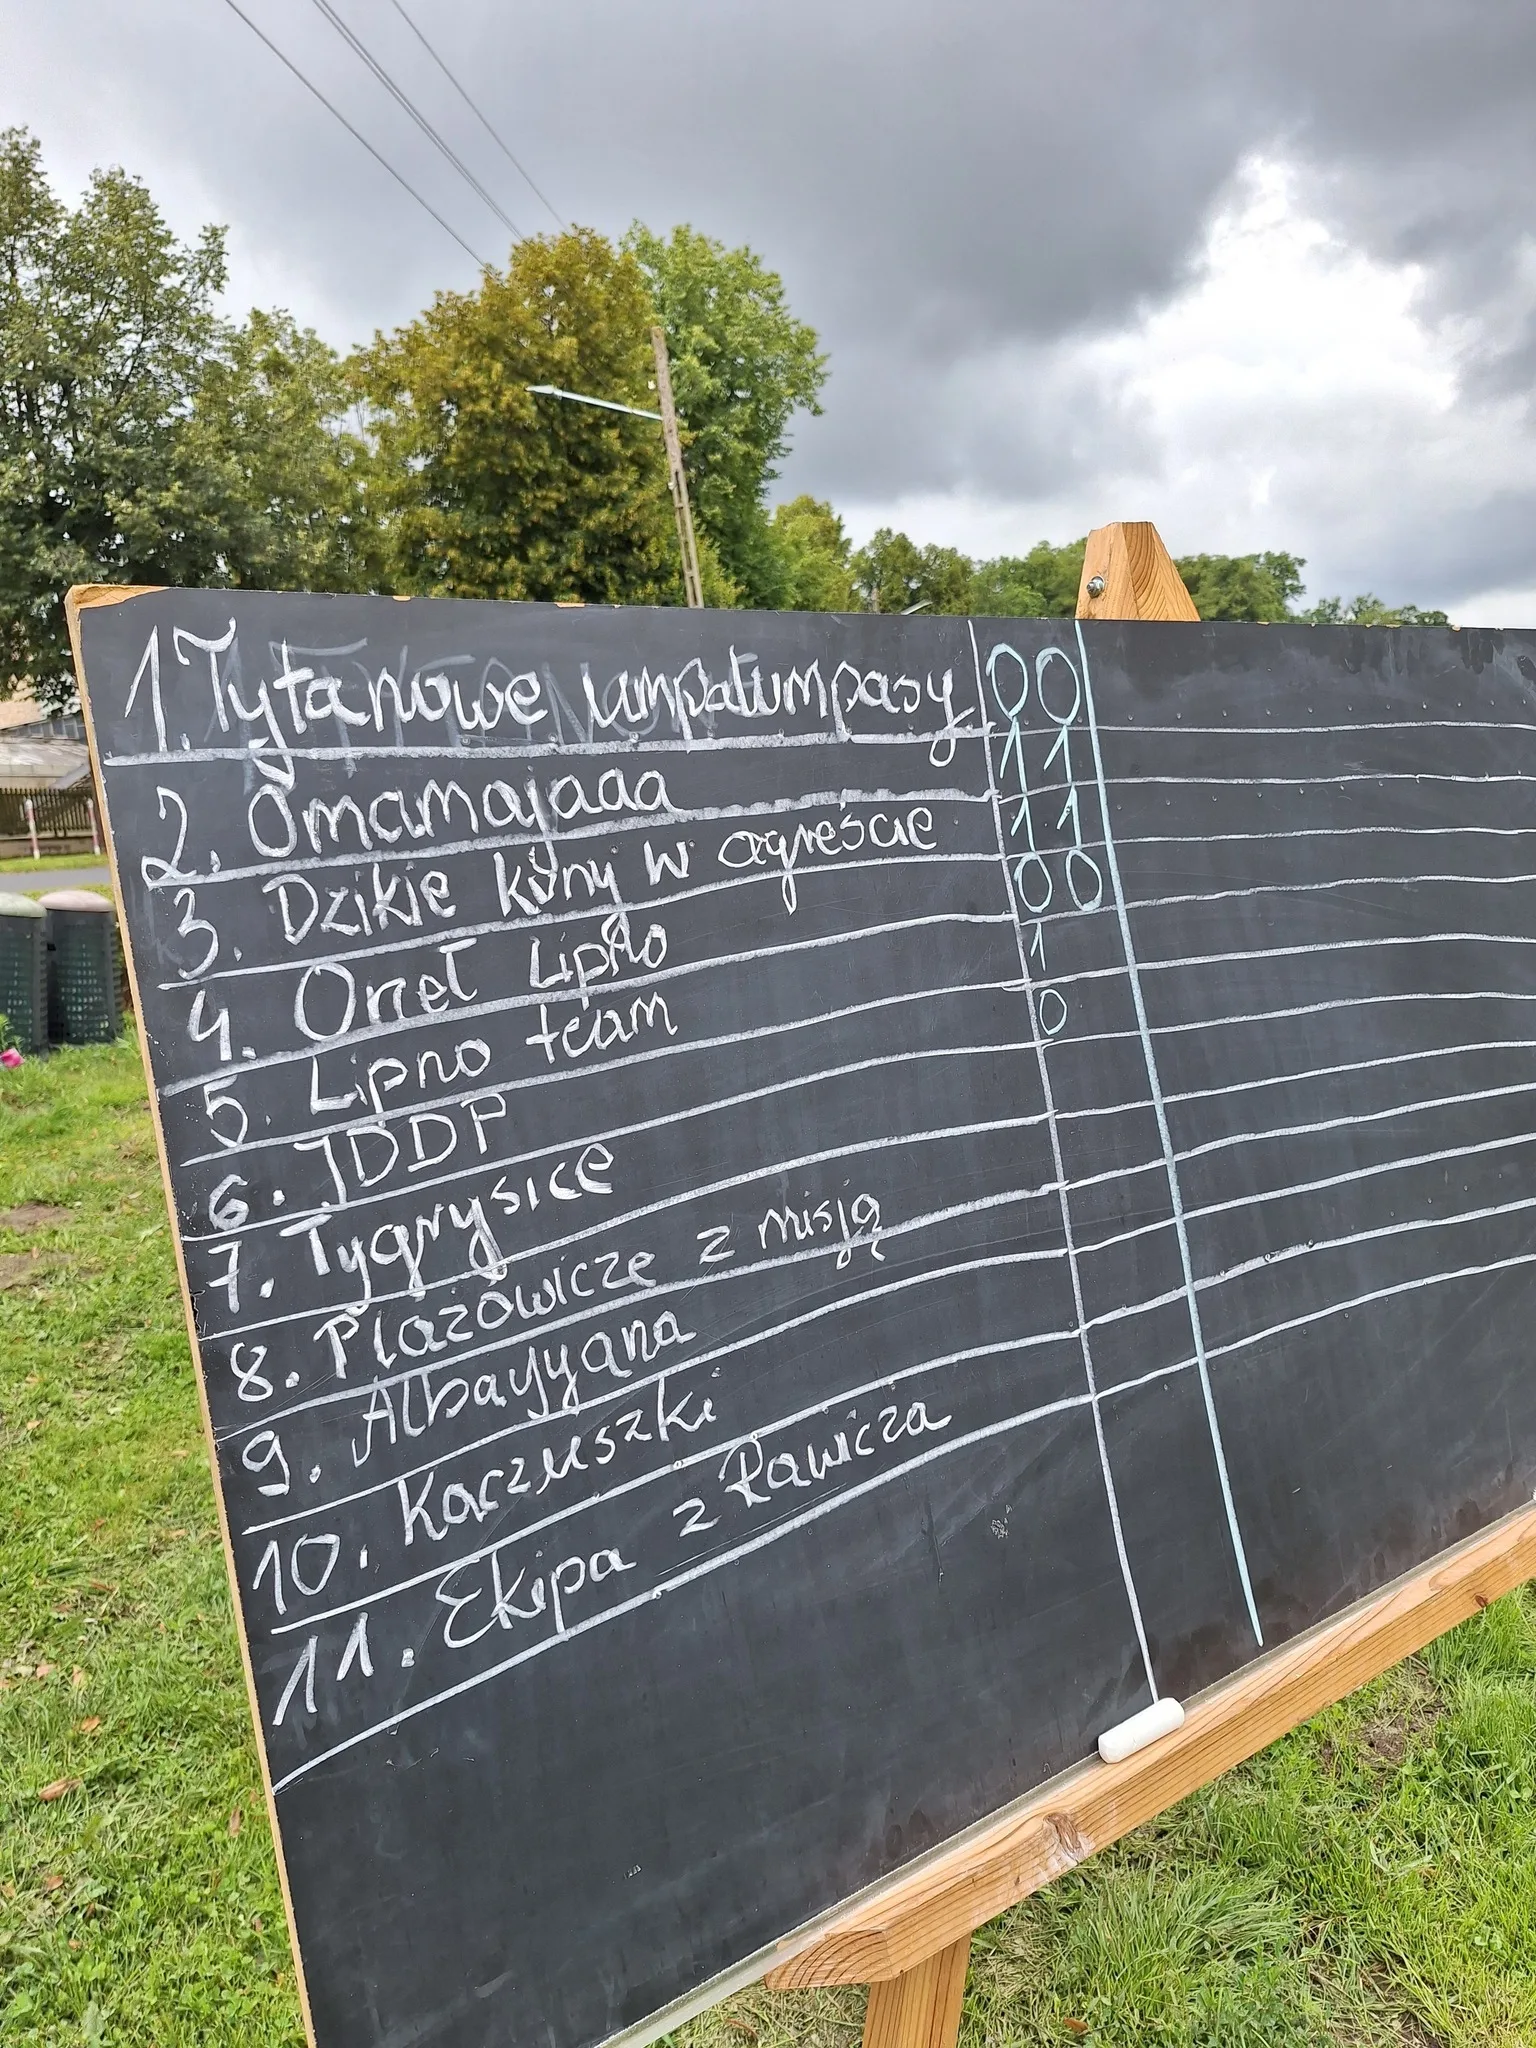 1. Tytanowe umpatumpasy 0 0
2. Omamajaaa 1 1
3. Dzikie kuny w agreście 1 1
4. Orzeł Lipno 0 0
5. Lipno team 1
6. JDDP 0
7. Tygrysice
8. Plażowicze z misją
9. Albayyana
10. Kaczuszki
11. Ekipa z Rawicza